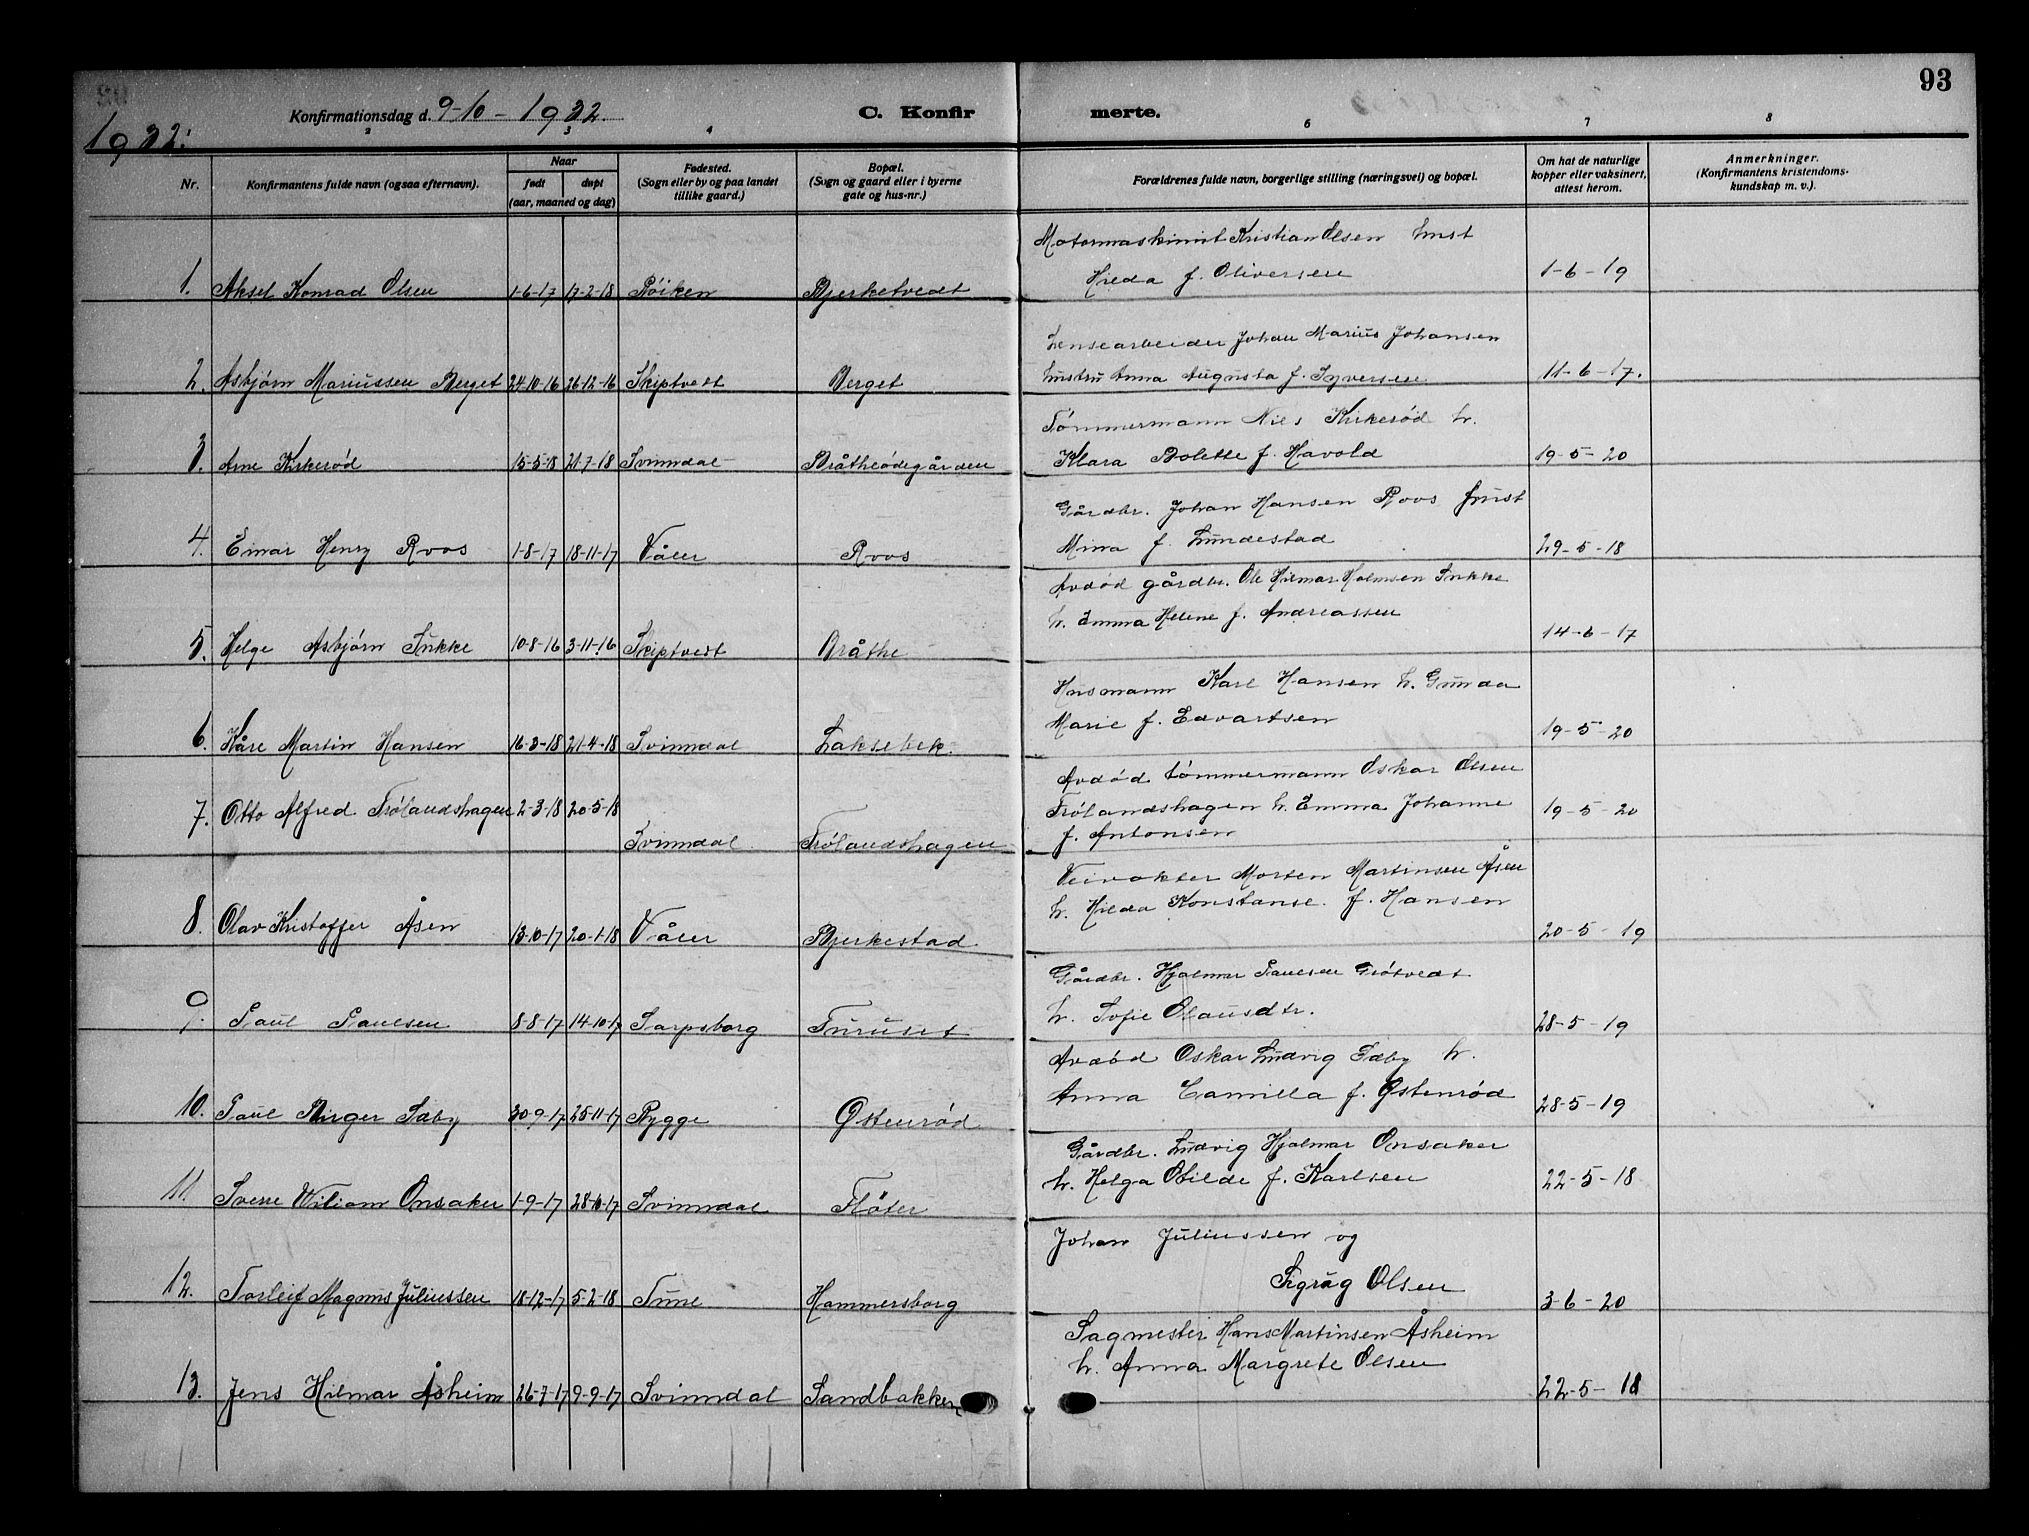 93
Konfirmationsdag d. 9-10-1932.
C. Konfirmerte.
1932:
2 3 4 6 7 8
Nr.
Konfirmantens fulde navn (ogsaa efternavn).
Naar
født døpt
(aar, maaned og dag)
Fødested.
(Sogn eller by og paa landet
tillike gaard.)
Bopæl.
(Sogn og gaard eller i byerne
gate og hus-nr.)
Forældrenes fulde navn, borgerlige stilling (næringsvei) og bopæl.
Om hat de naturlige
kopper eller vaksinert,
attest herom.
Anmerkninger.
(Konfirmantens kristendoms-
kundskap m. v.).
Motormaskinist Kristian Olsen hust
1. Aksel Konrad Olsen 1-6-17 17-2-18 Røiken Bjerketvedt Hilda f. Oliversen 1-6-19
Lensearbeider Johan Marius Johansen
2. Asbjørn Mariussen Berget 24-10-16 26-12-16 Skiptvedt Berget hustru Anna Augusta f. Syversen 11-6-17.
Tømmermann Nils Kirkerød h.
3. Arne Kirkerød 15-5-18 21-7-18 Svinndal Bråtheødegården Klara Bolette f. Havold 19-5-20
Gårdbr. Johan Hansen Roos hust
4. Einar Henry Roos 1-8-17 18-11-17 Våler Roos Mina f. Lundestad 29-5-18
Avdød gårdbr. Ole Hilmar Holmsen Sukke
h. Emma Helene f. Andreassen
5. Helge Asbjørn Sukke 10-8-16 3-11-16 Skiptvedt Bråthe 14-6-17
Husmann Karl Hansen h. Gunda
Marie f. Edvartsen
6. Kåre Martin Hansen 16-3-18 21-4-18 Svinndal Laksebek. 19-5-20
Avdød tømmermann Oskar Olsen
7. Otto Alfred Frølandshagen 2-3-18 20-5-18 Svinndal Frølandshagen Frølandshagen h. Emma Johanne 19-5-20
f. Antonsen
Veivokter Morten Martinsen Åsen
h. Hilda Konstanse. f. Hansen
8. Olav Kristoffer Åsen 13-10-17 20-1-18 Våler Bjerkestad 20-5-19
Gårdbr. Hjalmar Paulsen Grøtvedt
9. Paul Paulsen 8-8-17 14-10-17 Sarpsborg Furuset h. Sofie Olausdtr. 28-5-19
Avdød Oskar Ludvig Sæby h.
10. Paul Birger Sæby 30-9-17 25-11-17 Rygge Østenrød Anna Camilla f. Østenrød 28-5-19
Gårdbr. Ludvig Hjalmar Onsaker
11. Sverre Wiliam Onsaker 1-9-17 28-10-17 Svinndal Fløter h. Helga Otilde f. Karlsen 22-5-18
Johan Juliussen og
12. Torleif Magnus Juliussen 18-12-17 5-2-18 Tune Hammersborg Olsen 3-6-20
Sagmester Hans Martinsen Åsheim
h. Anna Margrete Olsen
13. Jens Hilmar Åsheim 26-7-17 9-9-17 Svinndal Sandbakken 22-5-18